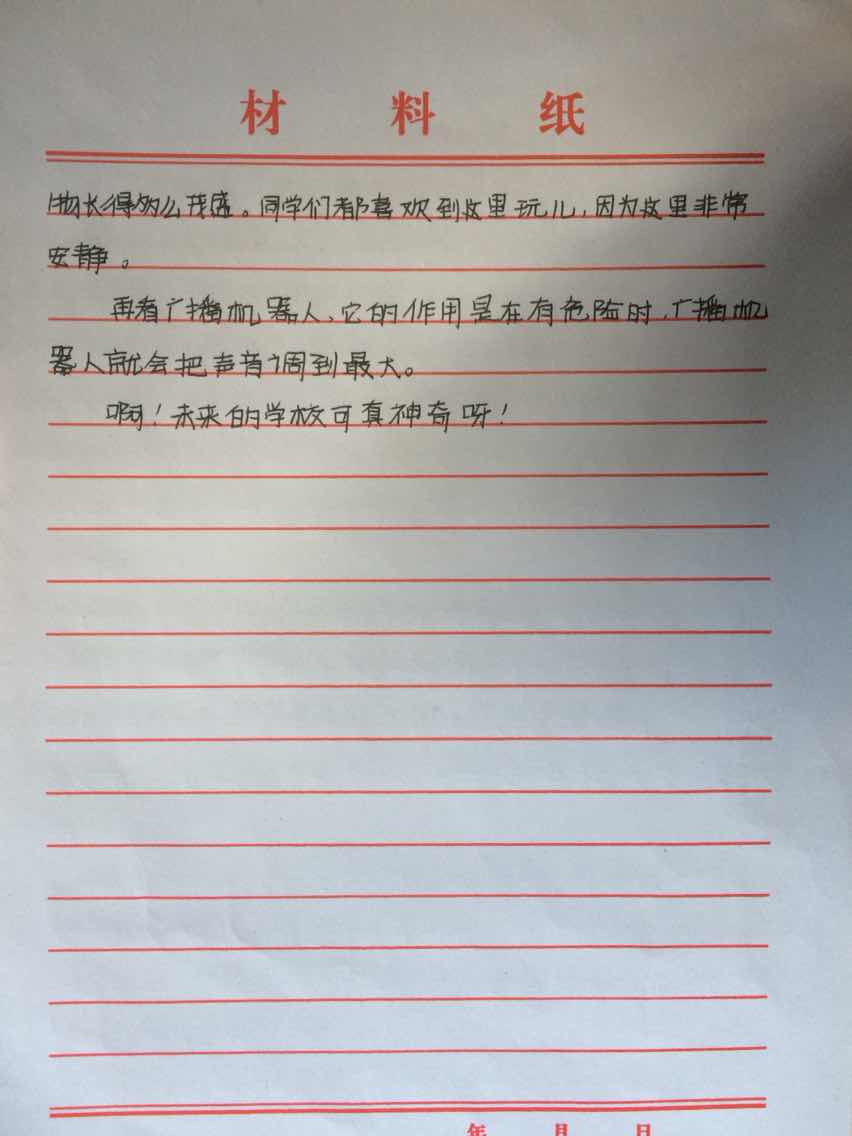 材料纸
物长得多么茂盛。同学们都喜欢到这里玩儿,因为这里非常
安静。
再看广播机器人,它的作用是在有危险时,广播机
器人就会把声音调到最大。
啊!未来的学校可真神奇呀!
年 月 日